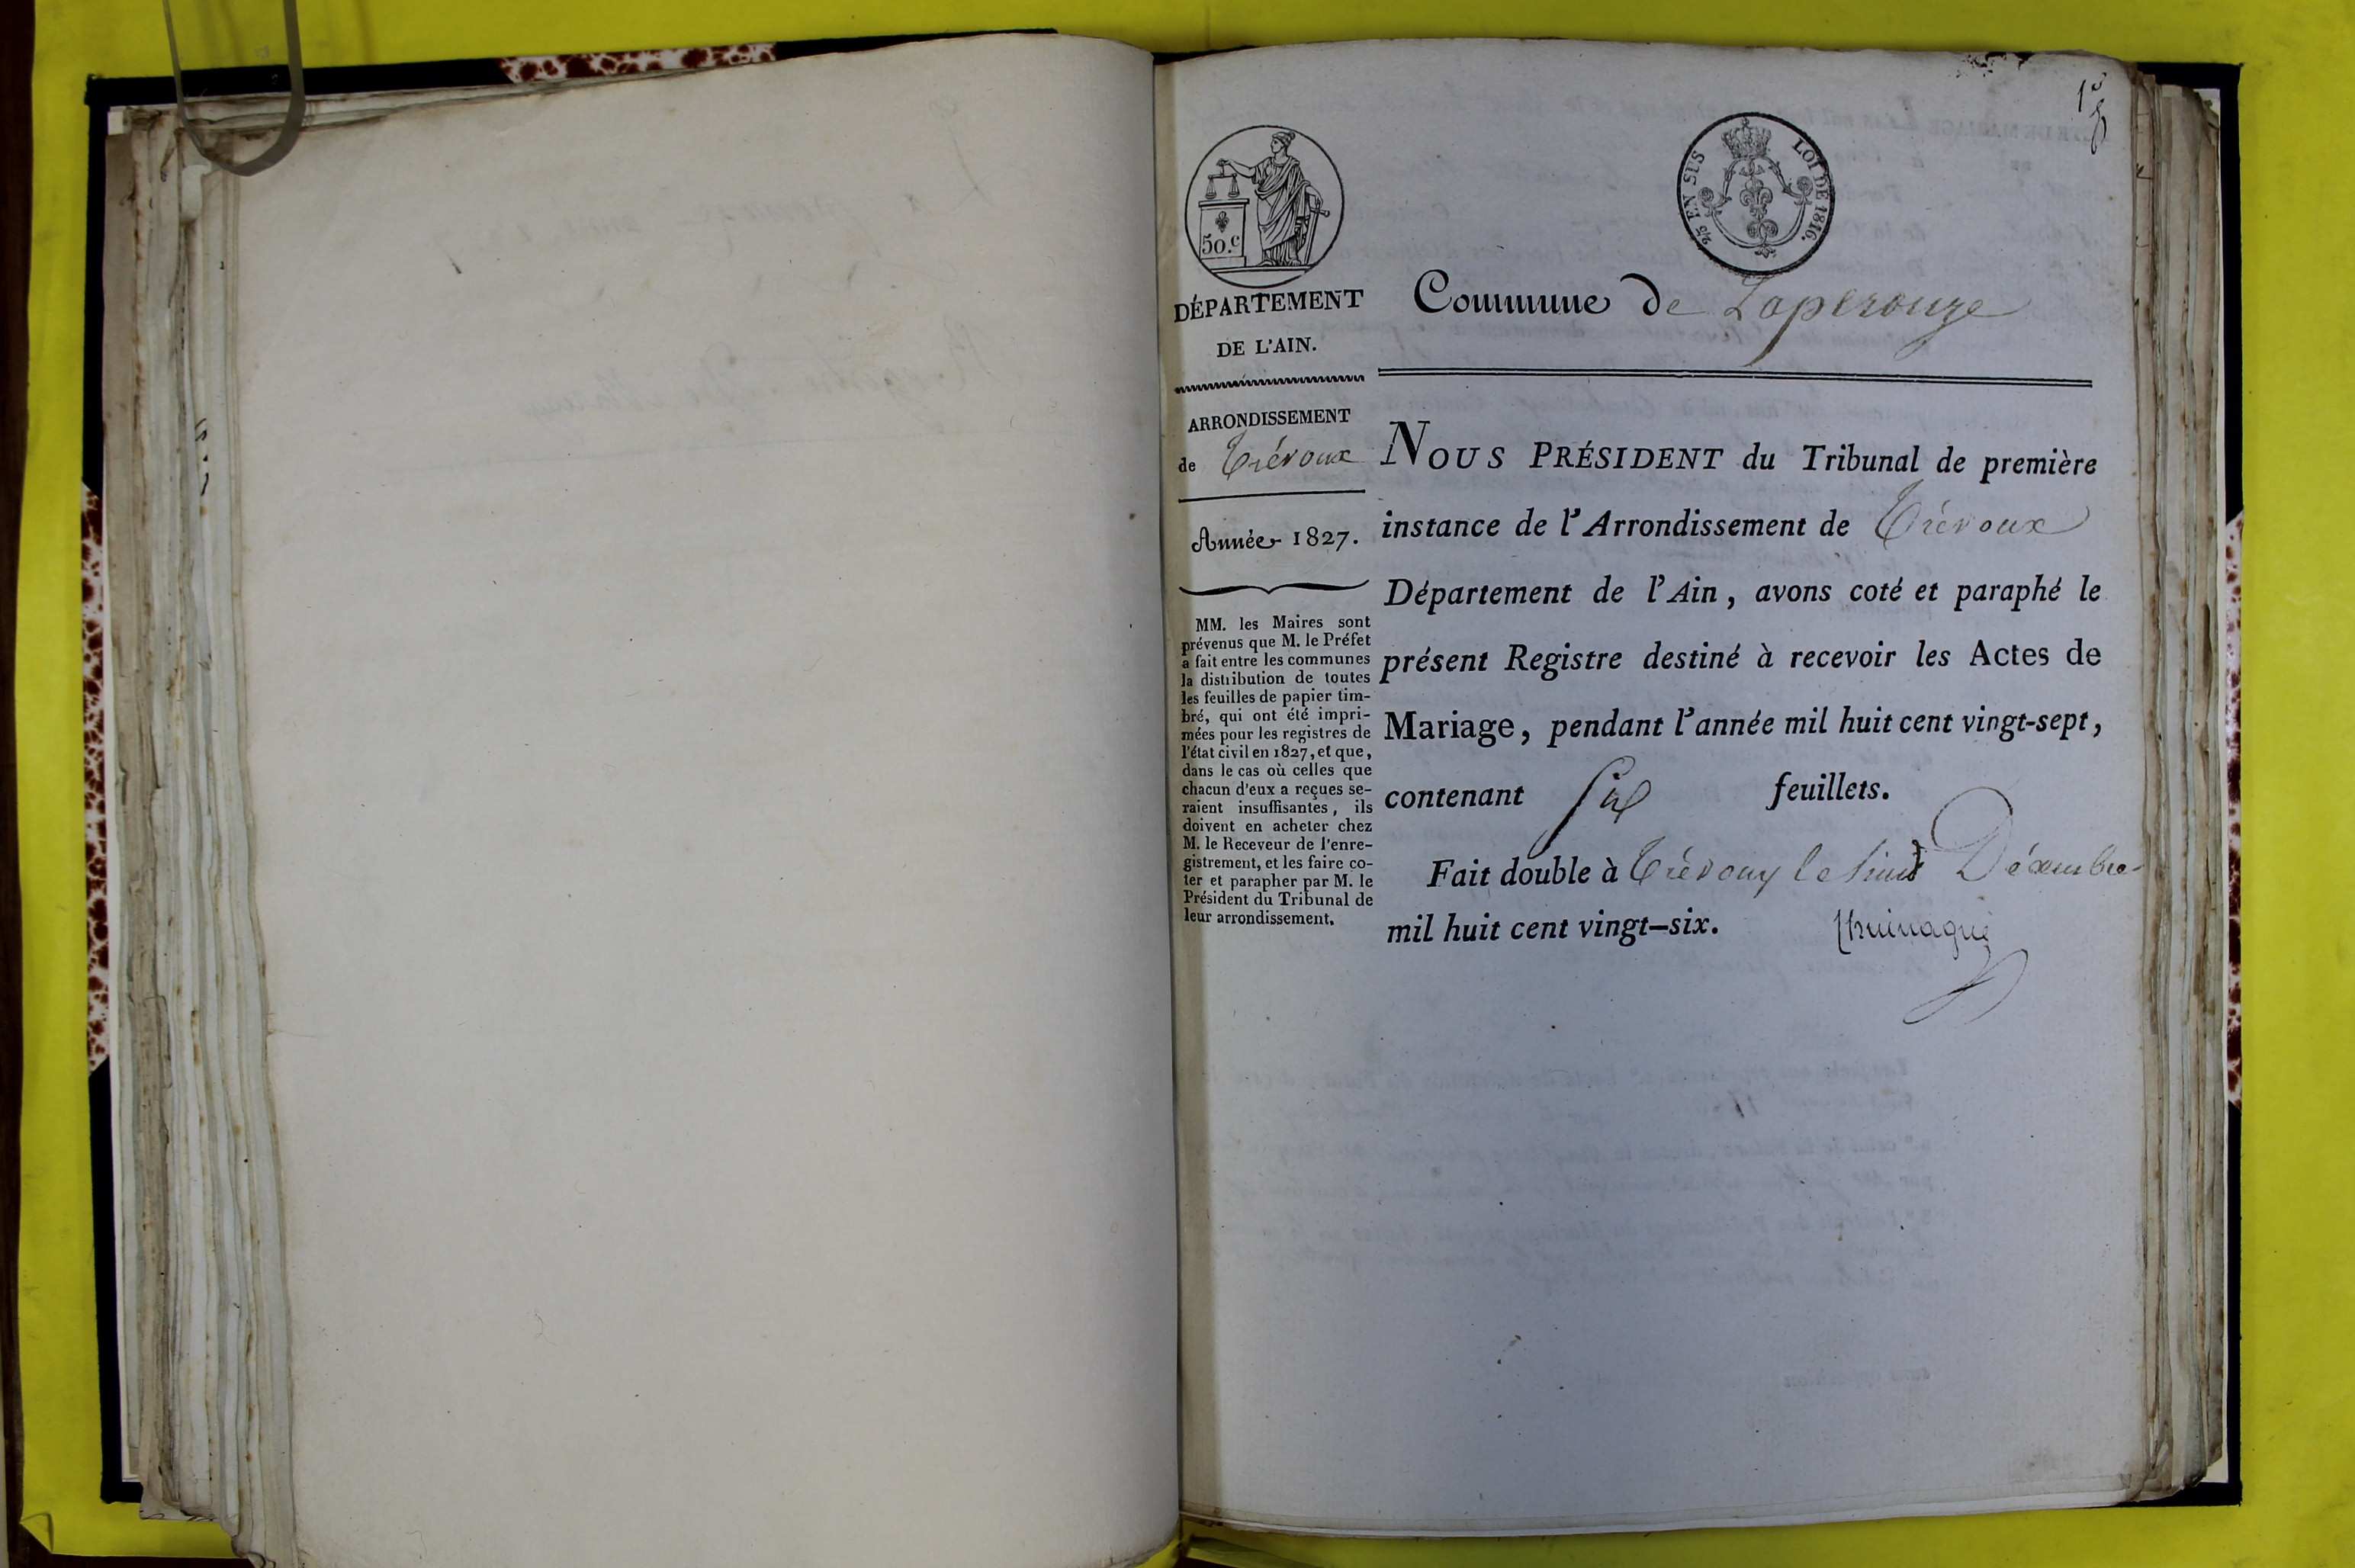 1er
50.c
2/5 EN SUS LOI DE 1816.
DÉPARTEMENT
DE L'AIN.
Commune de Laperouze
ARRONDISSEMENT
de Trévoux
Année 1827.
MM. les Maires sont
prévenus que M. le Préfet
a fait entre les communes
la distribution de toutes
les feuilles de papier tim-
bré, qui ont été impri-
mées pour les registres de
l'état civil en 1827, et que,
dans le cas où celles que
chacun d'eux a reçues se-
raient insuffisantes, ils
doivent en acheter chez
M. le Receveur de l'enre-
gistrement, et les faire co-
ter et parapher par M. le
Président du Tribunal de
leur arrondissement.
NOUS PRÉSIDENT du Tribunal de première
instance de l'Arrondissement de Trévoux
Département de l'Ain, avons coté et paraphé le
présent Registre destiné à recevoir les Actes de
Mariage, pendant l'année mil huit cent vingt-sept,
contenant Six feuillets.
Fait double à Trévoux le huit Décembre
mil huit cent vingt-six.